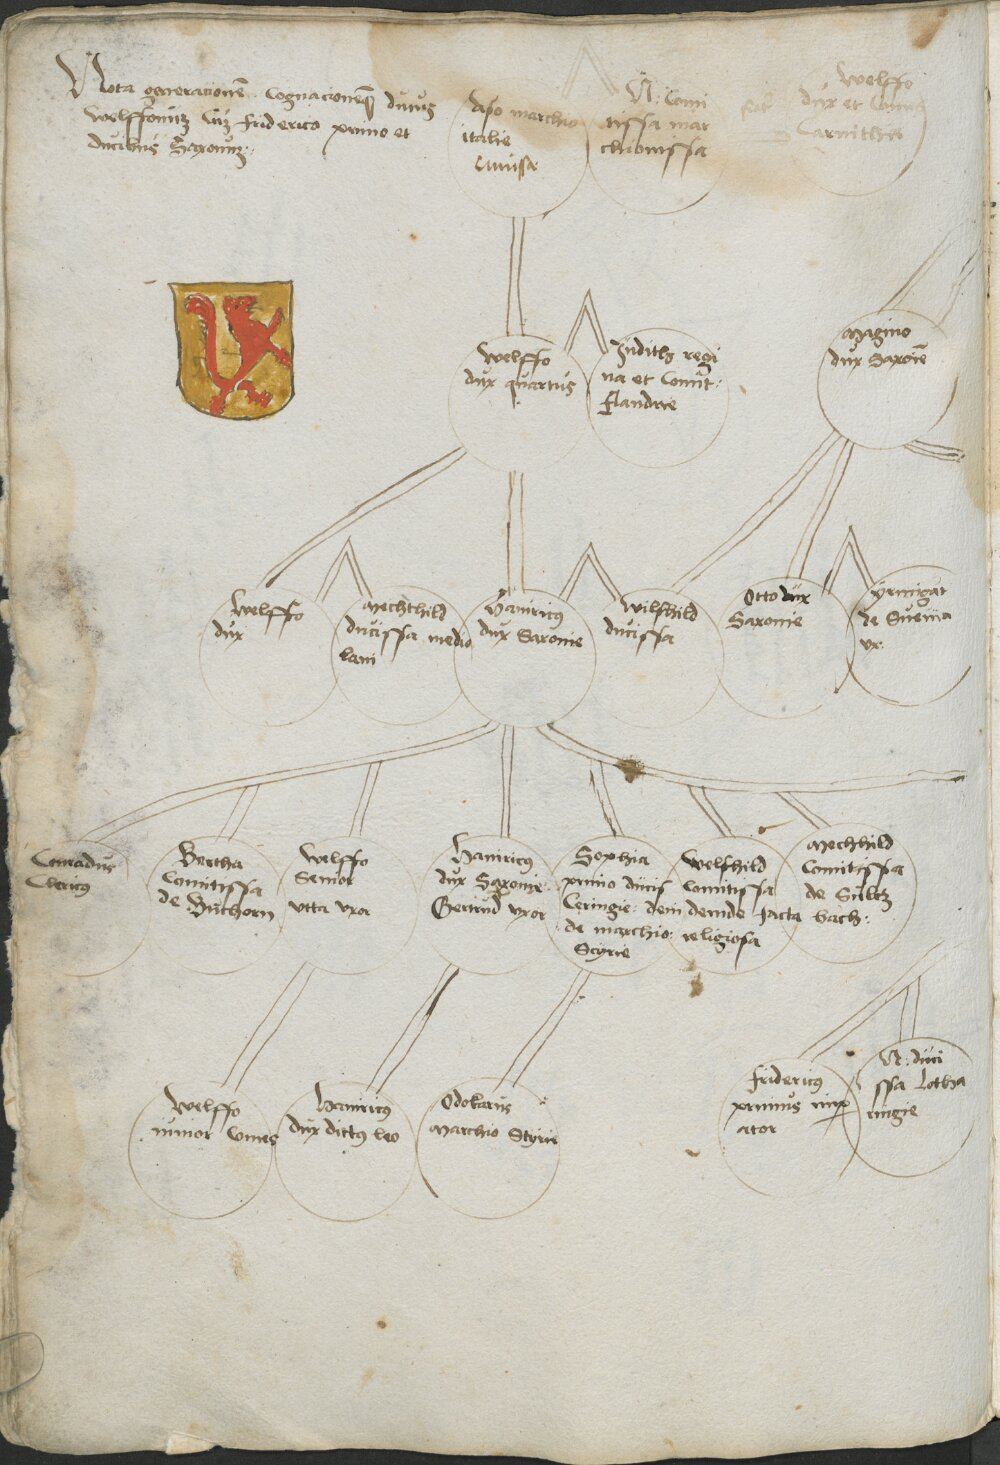 Nota generationem cognacionemque ducus
Welffonum cum friderico primo et
ducibus Saxonum
Aso marchio
italie
N. Comi
tissa mar
chionissa
Welffo
dux et
Carinthie
Welffo
dux quartus
Judith regi
na et Comit.
flandrie
Magino
dux Saxonie
Welffo
dux
Mechthild
ducissa medio
lani
Hainricus
dux Saxonie
Wilfhild
ducissa
Otto dux
Saxonie
yrmigat
de Sueuia
vx.
Conradus
Clericus
Bertha
Comitissa
de Buchorn
Welffo
Senior
Vtta vxor
Hainricus
dux Saxonie
Gertrud vxor
Sophia
primo ducis
Ceringie dein
de marchio.
Styrie
Welfhild
Comitissa
deinde facta
religiosa
Mechhild
Comitissa
de Sultz
bach
Welffo
iunior Comes
Hainricus
dux dictus leo
Odokarus
Marchio Styrie
fridericus
primus imp
ator
N. duci
ssa Lotha
ringie